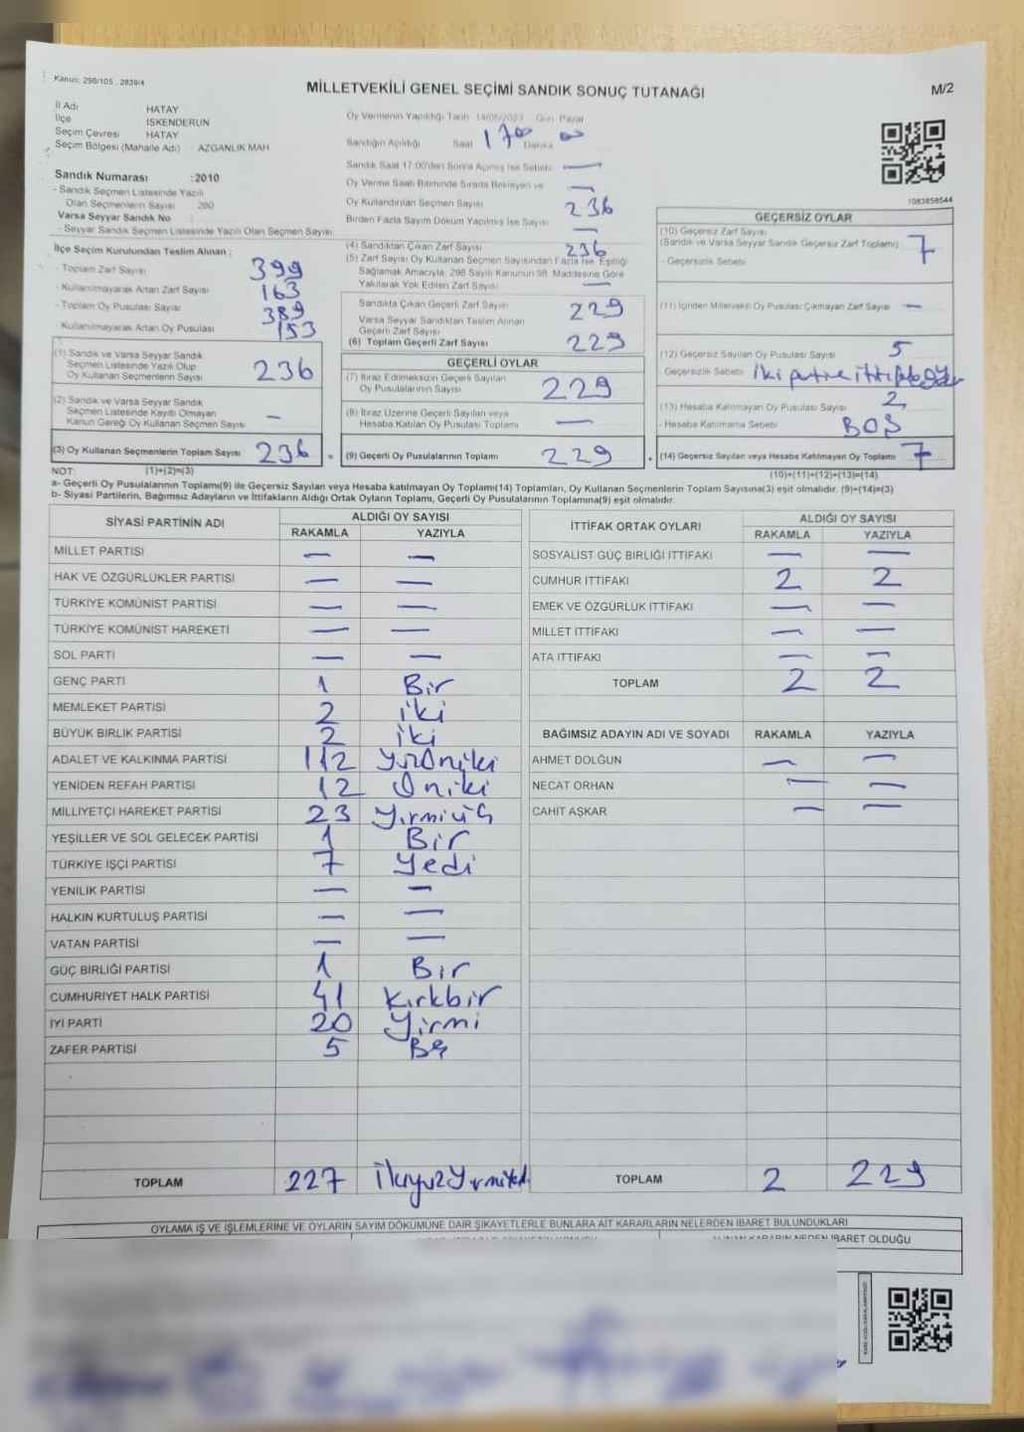 Kanun: 298/105 , 2839/4
MİLLETVEKİLİ GENEL SEÇİMİ SANDIK SONUÇ TUTANAĞI
M/2
İl Adı HATAY
İlçe İSKENDERUN
Seçim Çevresi HATAY
Seçim Bölgesi (Mahalle Adı) : AZGANLIK MAH
Sandık Numarası :2010
- Sandık Seçmen Listesinde Yazılı
Olan Seçmenlerin Sayısı
Varsa Seyyar Sandık No
- Seyyar Sandık Seçmen Listesinde Yazılı Olan Seçmen Sayısı:
Oy Vermenin Yapıldığı Tarih 14/05/2023 Gün Pazar
Sandığın Açıldığı Saat 17 00 Dakika 00
Sandık Saat 17:00'den Sonra Açılmış İse Sebebi —
Oy Verme Saati Bitiminde Sırada Bekleyen ve —
Oy Kullandırılan Seçmen Sayısı 236
Birden Fazla Sayım Döküm Yapılmış İse Sayısı —
1083858544
İlçe Seçim Kurulundan Teslim Alınan ;
- Toplam Zarf Sayısı 399
- Kullanılmayarak Artan Zarf Sayısı 163
- Toplam Oy Pusulası Sayısı 389
- Kullanılmayarak Artan Oy Pusulası 153
(1) Sandık ve Varsa Seyyar Sandık
Seçmen Listesinde Yazılı Olup
Oy Kullanan Seçmenlerin Sayısı 236
(2) Sandık ve Varsa Seyyar Sandık
Seçmen Listesinde Kayıtlı Olmayan
Kanun Gereği Oy Kullanan Seçmen Sayısı —
(3) Oy Kullanan Seçmenlerin Toplam Sayısı 236
(4) Sandıktan Çıkan Zarf Sayısı 236
(5) Zarf Sayısı Oy Kullanan Seçmen Sayısından Fazla İse, Eşitliği
Sağlamak Amacıyla, 298 Sayılı Kanunun 98. Maddesine Göre
Yakılarak Yok Edilen Zarf Sayısı —
Sandıkta Çıkan Geçerli Zarf Sayısı 229
Varsa Seyyar Sandıktan Teslim Alınan
Geçerli Zarf Sayısı
(6) Toplam Geçerli Zarf Sayısı 229
GEÇERLİ OYLAR
(7) İtiraz Edilmeksizin Geçerli Sayılan
Oy Pusulalarının Sayısı 229
(8) İtiraz Üzerine Geçerli Sayılan veya
Hesaba Katılan Oy Pusulası Toplamı —
(9) Geçerli Oy Pusulalarının Toplamı 229
GEÇERSİZ OYLAR
(10) Geçersiz Zarf Sayısı
(Sandık ve Varsa Seyyar Sandık Geçersiz Zarf Toplamı) 7
- Geçersizlik Sebebi
(11) İçinden Milletvekili Oy Pusulası Çıkmayan Zarf Sayısı —
(12) Geçersiz Sayılan Oy Pusulası Sayısı 5
Geçersizlik Sebebi iki
(13) Hesaba Katılmayan Oy Pusulası Sayısı 2
- Hesaba Katılmama Sebebi BOŞ
(14) Geçersiz Sayılan veya Hesaba Katılmayan Oy Toplamı 7
NOT: (1)+(2)=(3)
(10)+(11)+(12)+(13)=(14)
a- Geçerli Oy Pusulalarının Toplamı(9) ile Geçersiz Sayılan veya Hesaba katılmayan Oy Toplamı(14) Toplamları, Oy Kullanan Seçmenlerin Toplam Sayısına(3) eşit olmalıdır. (9)+(14)=(3)
b- Siyasi Partilerin, Bağımsız Adayların ve İttifakların Aldığı Ortak Oyların Toplamı, Geçerli Oy Pusulalarının Toplamına(9) eşit olmalıdır.
SİYASİ PARTİNİN ADI ALDIĞI OY SAYISI
RAKAMLA YAZIYLA
MİLLET PARTİSİ — —
HAK VE ÖZGÜRLÜKLER PARTİSİ — —
TÜRKİYE KOMÜNİST PARTİSİ — —
TÜRKİYE KOMÜNİST HAREKETİ — —
SOL PARTİ — —
GENÇ PARTİ 1 Bir
MEMLEKET PARTİSİ 2 iki
BÜYÜK BİRLİK PARTİSİ 2 iki
ADALET VE KALKINMA PARTİSİ 112 yüzoniki
YENİDEN REFAH PARTİSİ 12 Oniki
MİLLİYETÇİ HAREKET PARTİSİ 23 yirmiüç
YEŞİLLER VE SOL GELECEK PARTİSİ 1 Bir
TÜRKİYE İŞÇİ PARTİSİ 7 yedi
YENİLİK PARTİSİ — —
HALKIN KURTULUŞ PARTİSİ — —
VATAN PARTİSİ — —
GÜÇ BİRLİĞİ PARTİSİ 1 Bir
CUMHURİYET HALK PARTİSİ 41 Kırkbir
İYİ PARTİ 20 yirmi
ZAFER PARTİSİ 5 Beş
TOPLAM 227 ikiyüzyirmiyedi
İTTİFAK ORTAK OYLARI ALDIĞI OY SAYISI
RAKAMLA YAZIYLA
SOSYALİST GÜÇ BİRLİĞİ İTTİFAKI — —
CUMHUR İTTİFAKI 2 2
EMEK VE ÖZGÜRLÜK İTTİFAKI — —
MİLLET İTTİFAKI — —
ATA İTTİFAKI — —
TOPLAM 2 2
BAĞIMSIZ ADAYIN ADI VE SOYADI RAKAMLA YAZIYLA
AHMET DOLĞUN — —
NECAT ORHAN — —
CAHİT AŞKAR — —
TOPLAM 2 229
OYLAMA İŞ VE İŞLEMLERİNE VE OYLARIN SAYIM DÖKÜMÜNE DAİR ŞİKAYETLERLE BUNLARA AİT KARARLARIN NELERDEN İBARET BULUNDUKLARI
ALINAN KARARIN NEDEN İBARET OLDUĞU